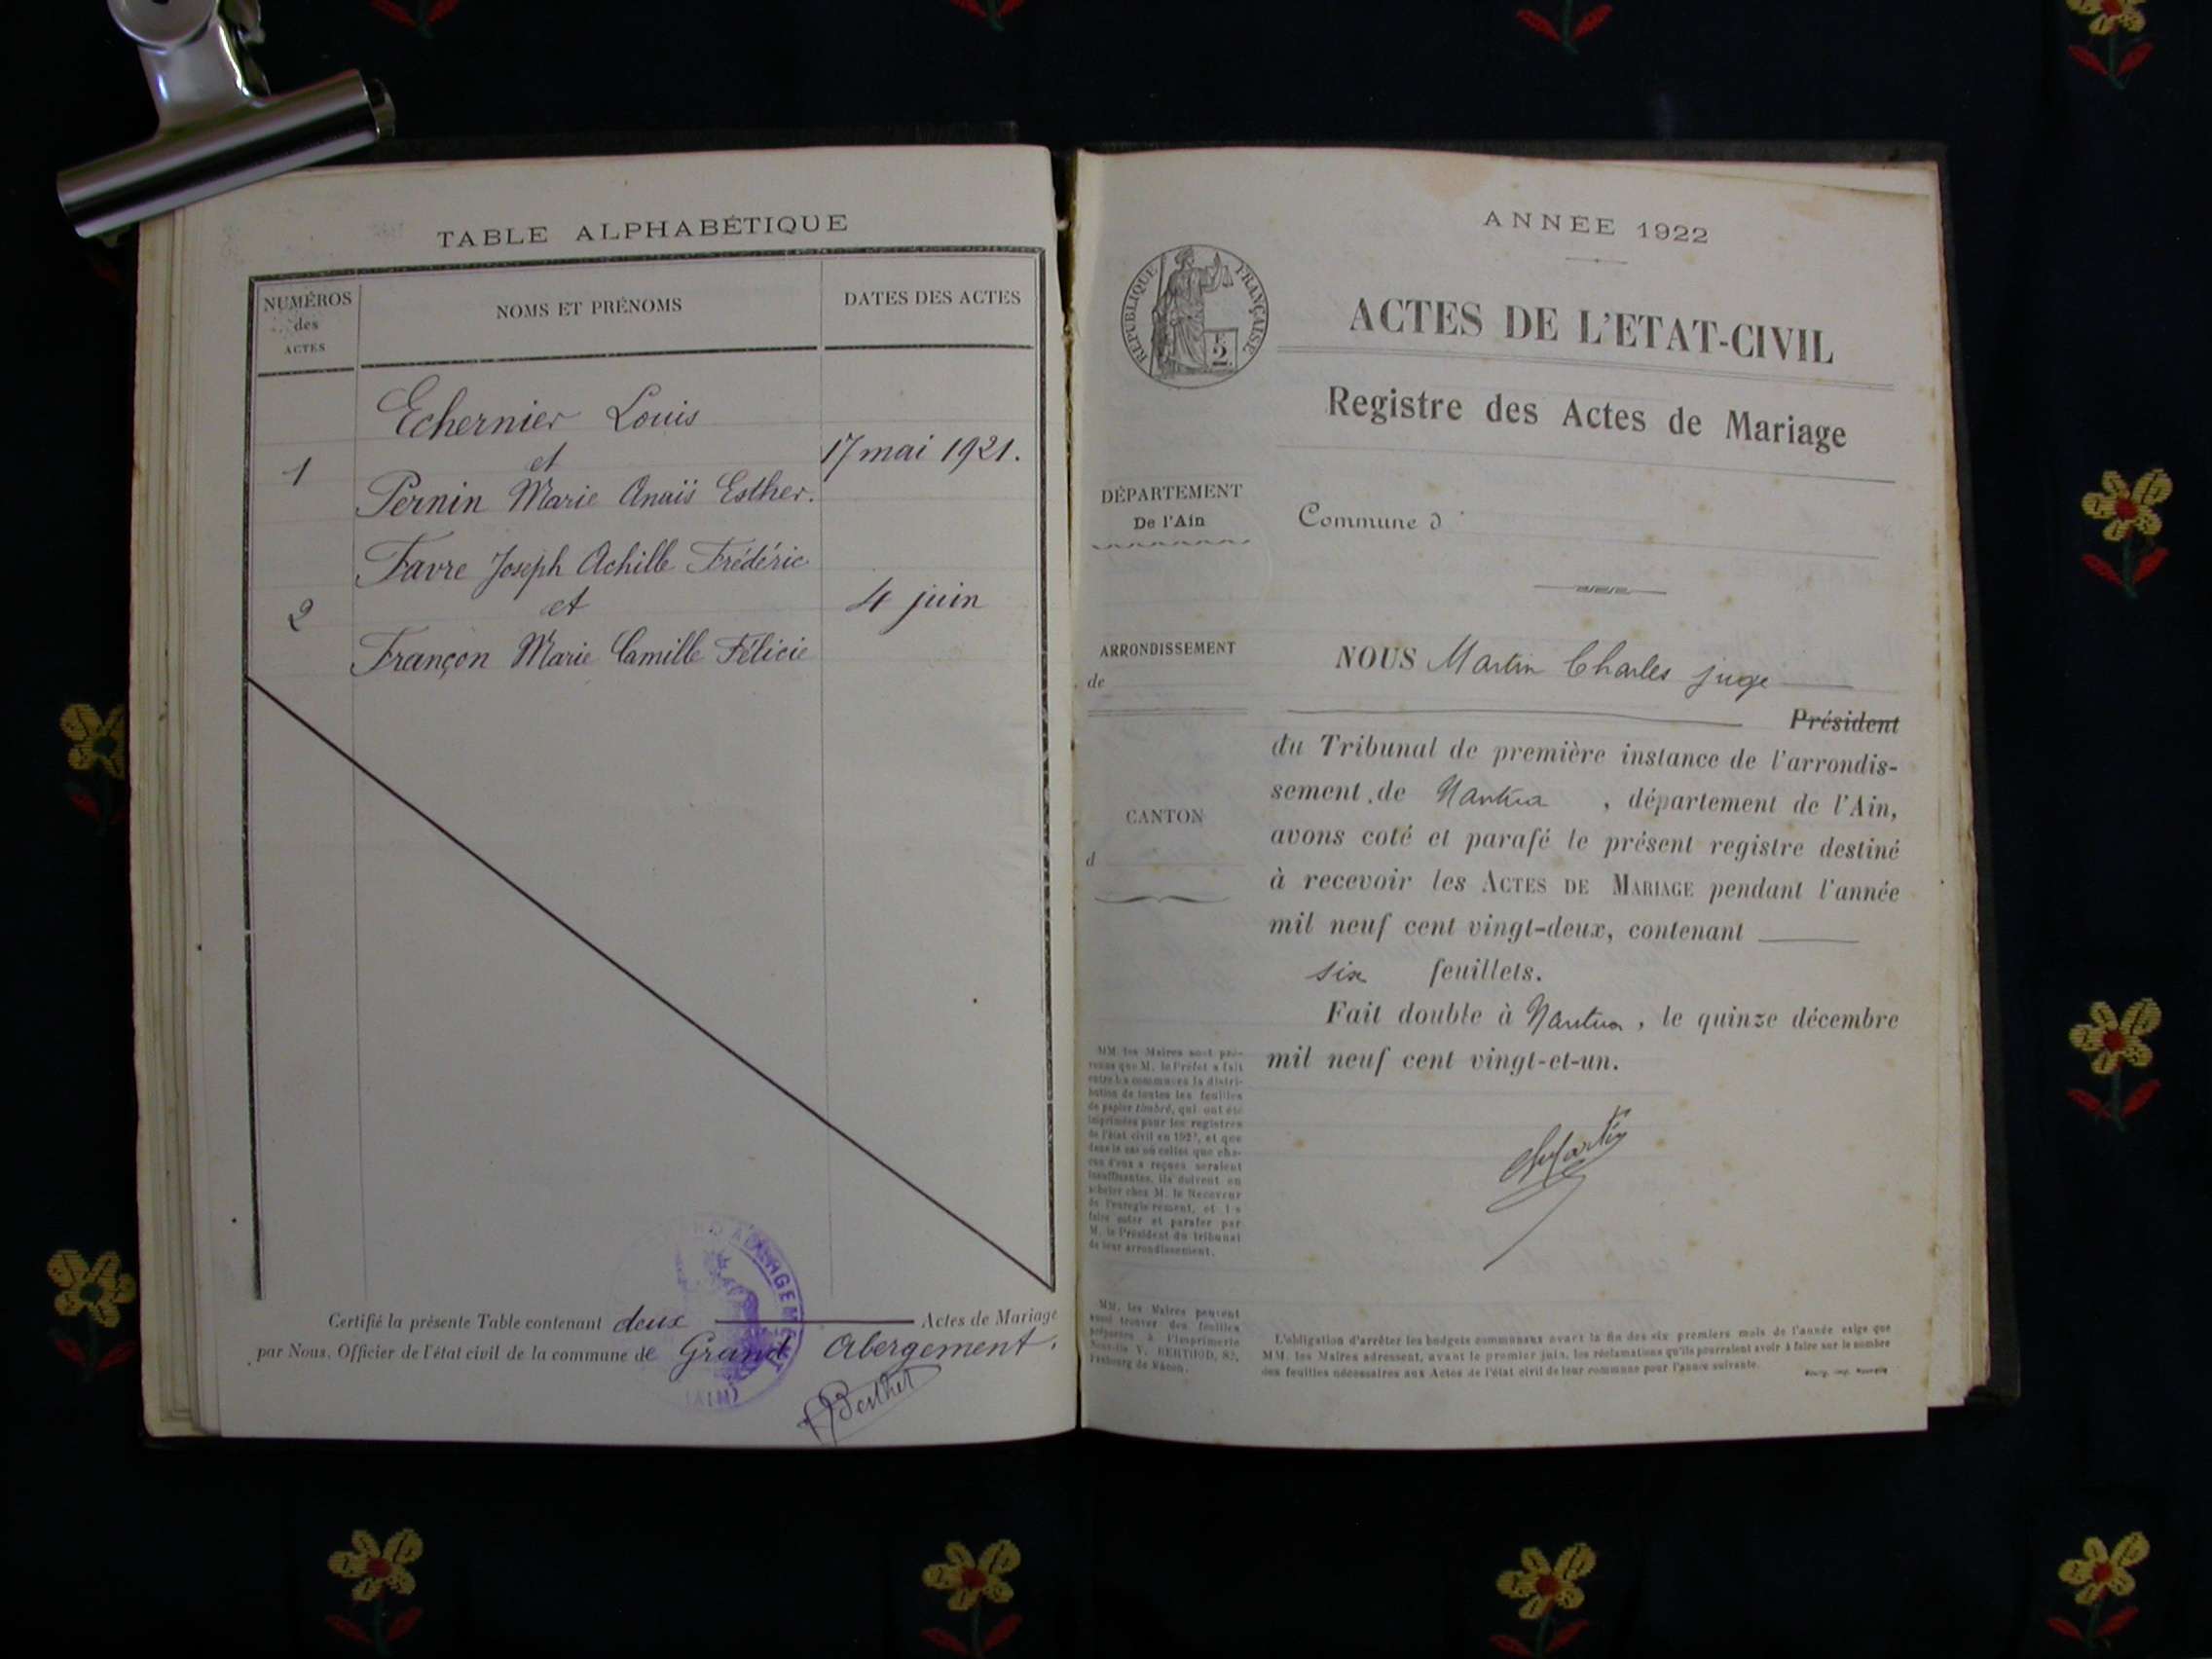 TABLE ALPHABÉTIQUE
NUMÉROS
des
ACTES
NOMS ET PRÉNOMS
DATES DES ACTES
Echernier Louis
et
1
17 mai 1921.
Pernin Marie Anaïs Esther.
Favre Joseph Achille Frédéric
et
2
4 juin
Françon Marie Camille Félicie
Certifié la présente Table contenant deux Actes de Mariage
par Nous, Officier de l'état civil de la commune de Grand Abergement.
Berthet
(AIN)
ANNÉE 1922
RÉPUBLIQUE FRANÇAISE
ACTES DE L'ETAT-CIVIL
Registre des Actes de Mariage
DÉPARTEMENT
De l'Ain
Commune d
ARRONDISSEMENT
de
CANTON
d
NOUS Martin Charles juge
Président
du Tribunal de première instance de l'arrondis-
sement de Nantua, département de l'Ain,
avons coté et parafé le présent registre destiné
à recevoir les ACTES DE MARIAGE pendant l'année
mil neuf cent vingt-deux, contenant
six feuillets.
Fait double à Nantua, le quinze décembre
mil neuf cent vingt-et-un.
ChMartin
MM. les Maires sont pré-
venus que M. le Préfet a fait
entre les communes la distri-
bution de toutes les feuilles
de papier timbré, qui ont été
imprimées pour les registres
de l'état civil en 1922, et que
dans le cas où celles que cha-
cun d'eux a reçues seraient
insuffisantes, ils doivent en
acheter chez M. le Receveur
de l'enregistrement, et les
faire coter et parafer par
M. le Président du tribunal
de leur arrondissement.
MM. les Maires peuvent
aussi trouver des feuilles
préparées à l'Imprimerie
Nouvelle V. BERTHOD, 82,
Faubourg de Mâcon.
L'obligation d'arrêter les budgets communaux avant la fin des six premiers mois de l'année exige que
MM. les Maires adressent, avant le premier juin, les réclamations qu'ils pourraient avoir à faire sur le nombre
des feuilles nécessaires aux Actes de l'état civil de leur commune pour l'année suivante.
Bourg, imp. Nouvelle